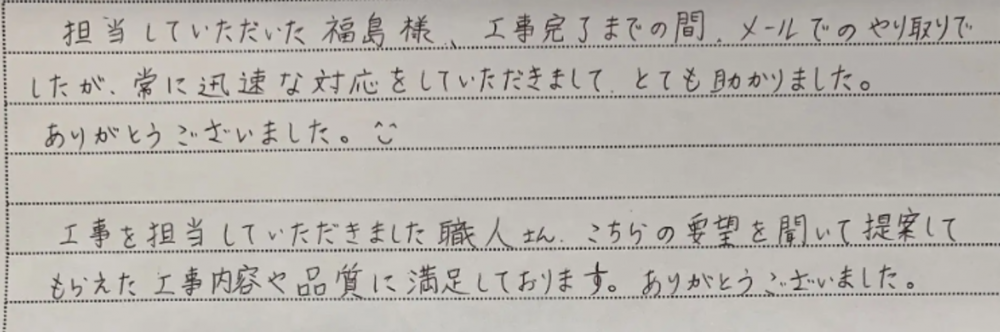 担当していただいた福島様、工事完了までの間、メールでのやり取りで
したが、常に迅速な対応をしていただきまして、とても助かりました。
ありがとうございました。
工事を担当していただきました職人さん、こちらの要望を聞いて提案して
もらえた工事内容や品質に満足しております。ありがとうございました。